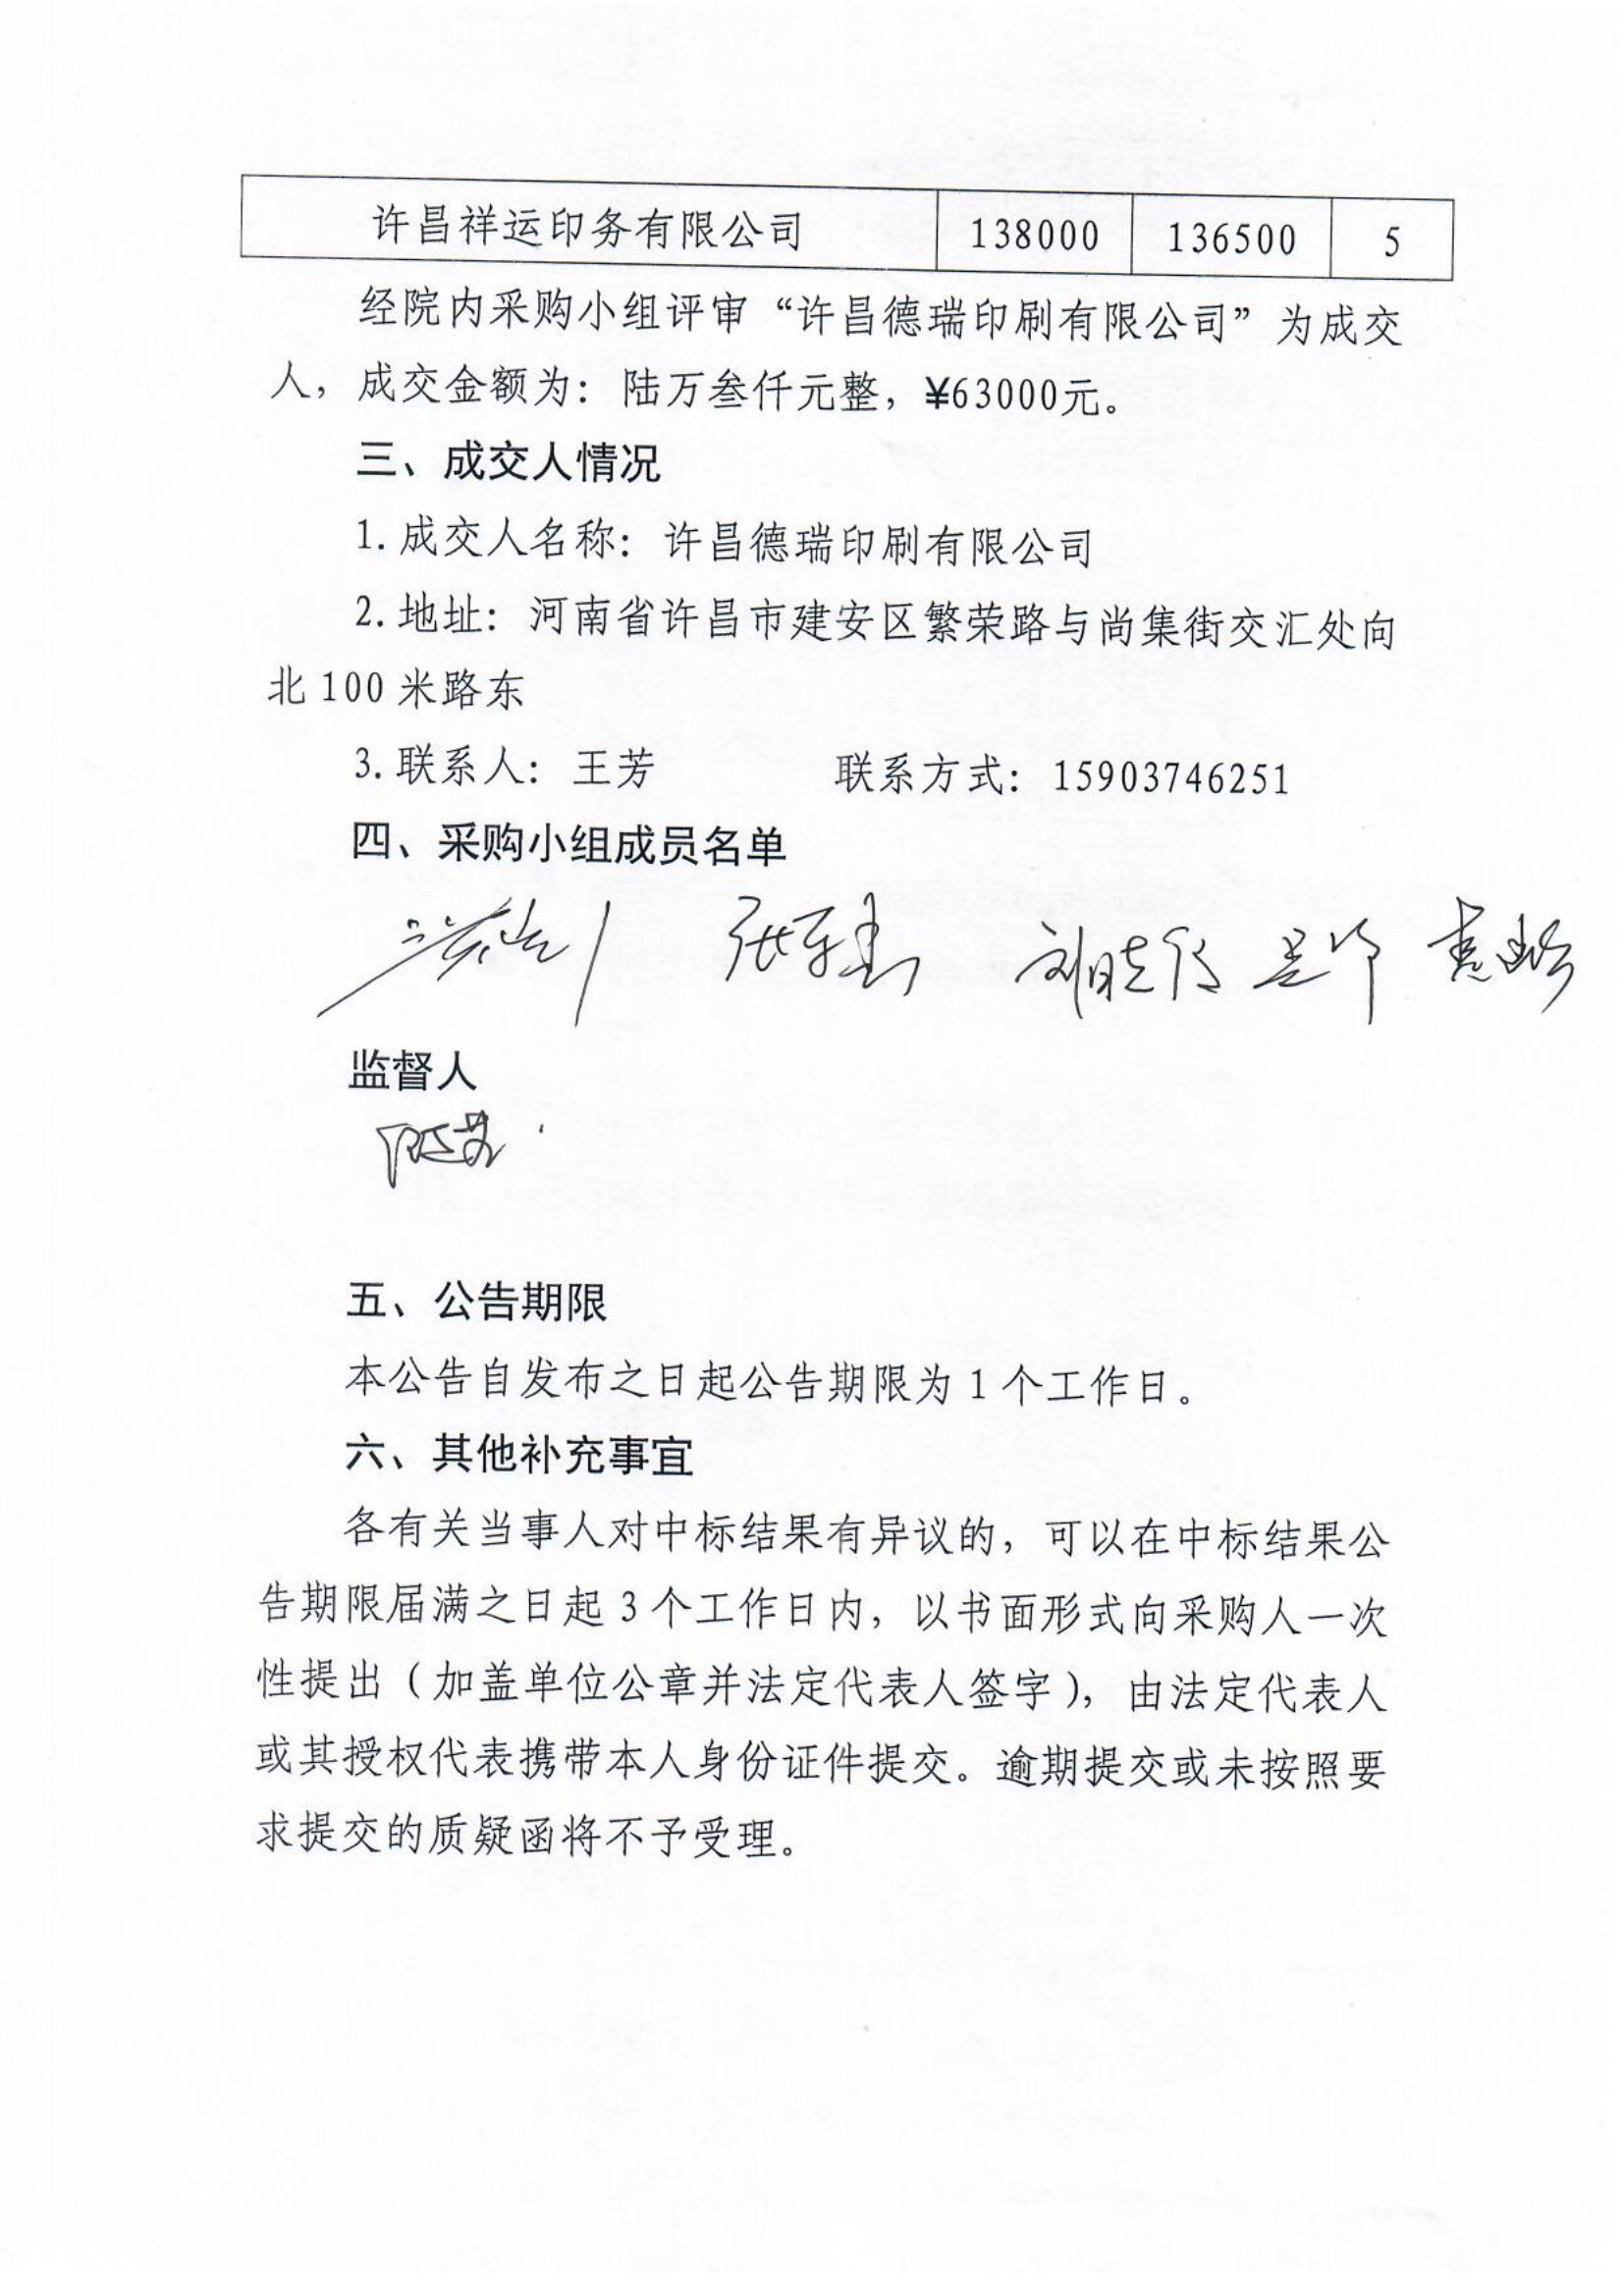 许昌祥运印务有限公司 138000 136500 5
经院内采购小组评审“许昌德瑞印刷有限公司”为成交
人，成交金额为：陆万叁仟元整，¥63000元。
三、成交人情况
1.成交人名称：许昌德瑞印刷有限公司
2.地址：河南省许昌市建安区繁荣路与尚集街交汇处向
北100米路东
3.联系人：王芳 联系方式：15903746251
四、采购小组成员名单
监督人
五、公告期限
本公告自发布之日起公告期限为1个工作日。
六、其他补充事宜
各有关当事人对中标结果有异议的，可以在中标结果公
告期限届满之日起3个工作日内，以书面形式向采购人一次
性提出（加盖单位公章并法定代表人签字），由法定代表人
或其授权代表携带本人身份证件提交。逾期提交或未按照要
求提交的质疑函将不予受理。